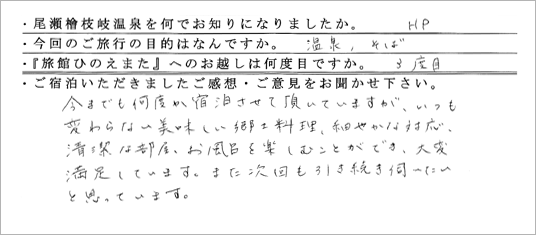 ・尾瀬檜枝岐温泉を何でお知りになりましたか。 HP
・今回のご旅行の目的はなんですか。 温泉，そば
・『旅館ひのえまた』へのお越しは何度目ですか。 3度目
・ご宿泊いただきましたご感想・ご意見をお聞かせ下さい。
今までも何度か宿泊させて頂いていますが、いつも
変わらない美味しい郷土料理、細やかな対応、
清潔な部屋、お風呂を楽しむことができ、大変
満足しています。また次回も引き続き伺いたい
と思っています。